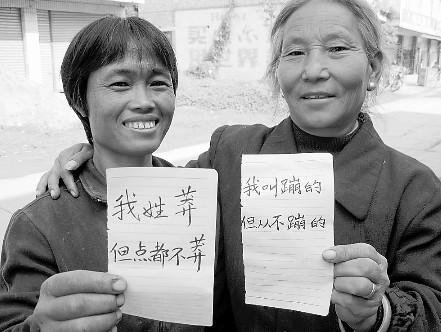 我姓莽
但点都不莽
我叫蹦的
但从不蹦的